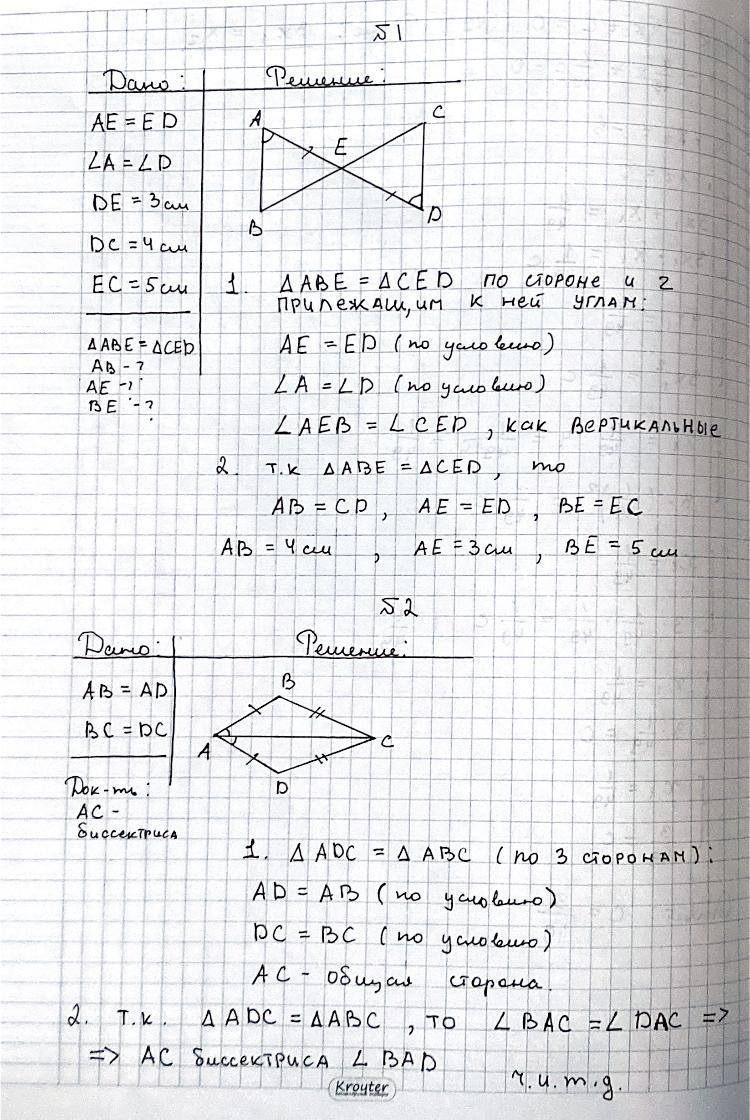 №1
Дано: Решение:
AE = ED
∠A = ∠D
DE = 3см
DC = 4см
EC = 5см
ΔABE = ΔCED
AB - ?
AE - ?
BE - ?
A
C
E
B
D
1. ΔABE = ΔCED по стороне и 2
прилежащим к ней углам:
AE = ED (по условию)
∠A = ∠D (по условию)
∠AEB = ∠CED, как вертикальные
2. т.к ΔABE = ΔCED, то
AB = CD, AE = ED, BE = EC
AB = 4см, AE = 3см, BE = 5см
№2
Дано: Решение:
AB = AD
BC = DC
Док-ть:
AC -
биссектриса
B
A
C
D
1. ΔADC = ΔABC (по 3 сторонам):
AD = AB (по условию)
DC = BC (по условию)
AC - общая сторона.
2. т.к. ΔADC = ΔABC, то ∠BAC = ∠DAC =>
=> AC биссектриса ∠BAD
ч.и.т.д.
Kroyter